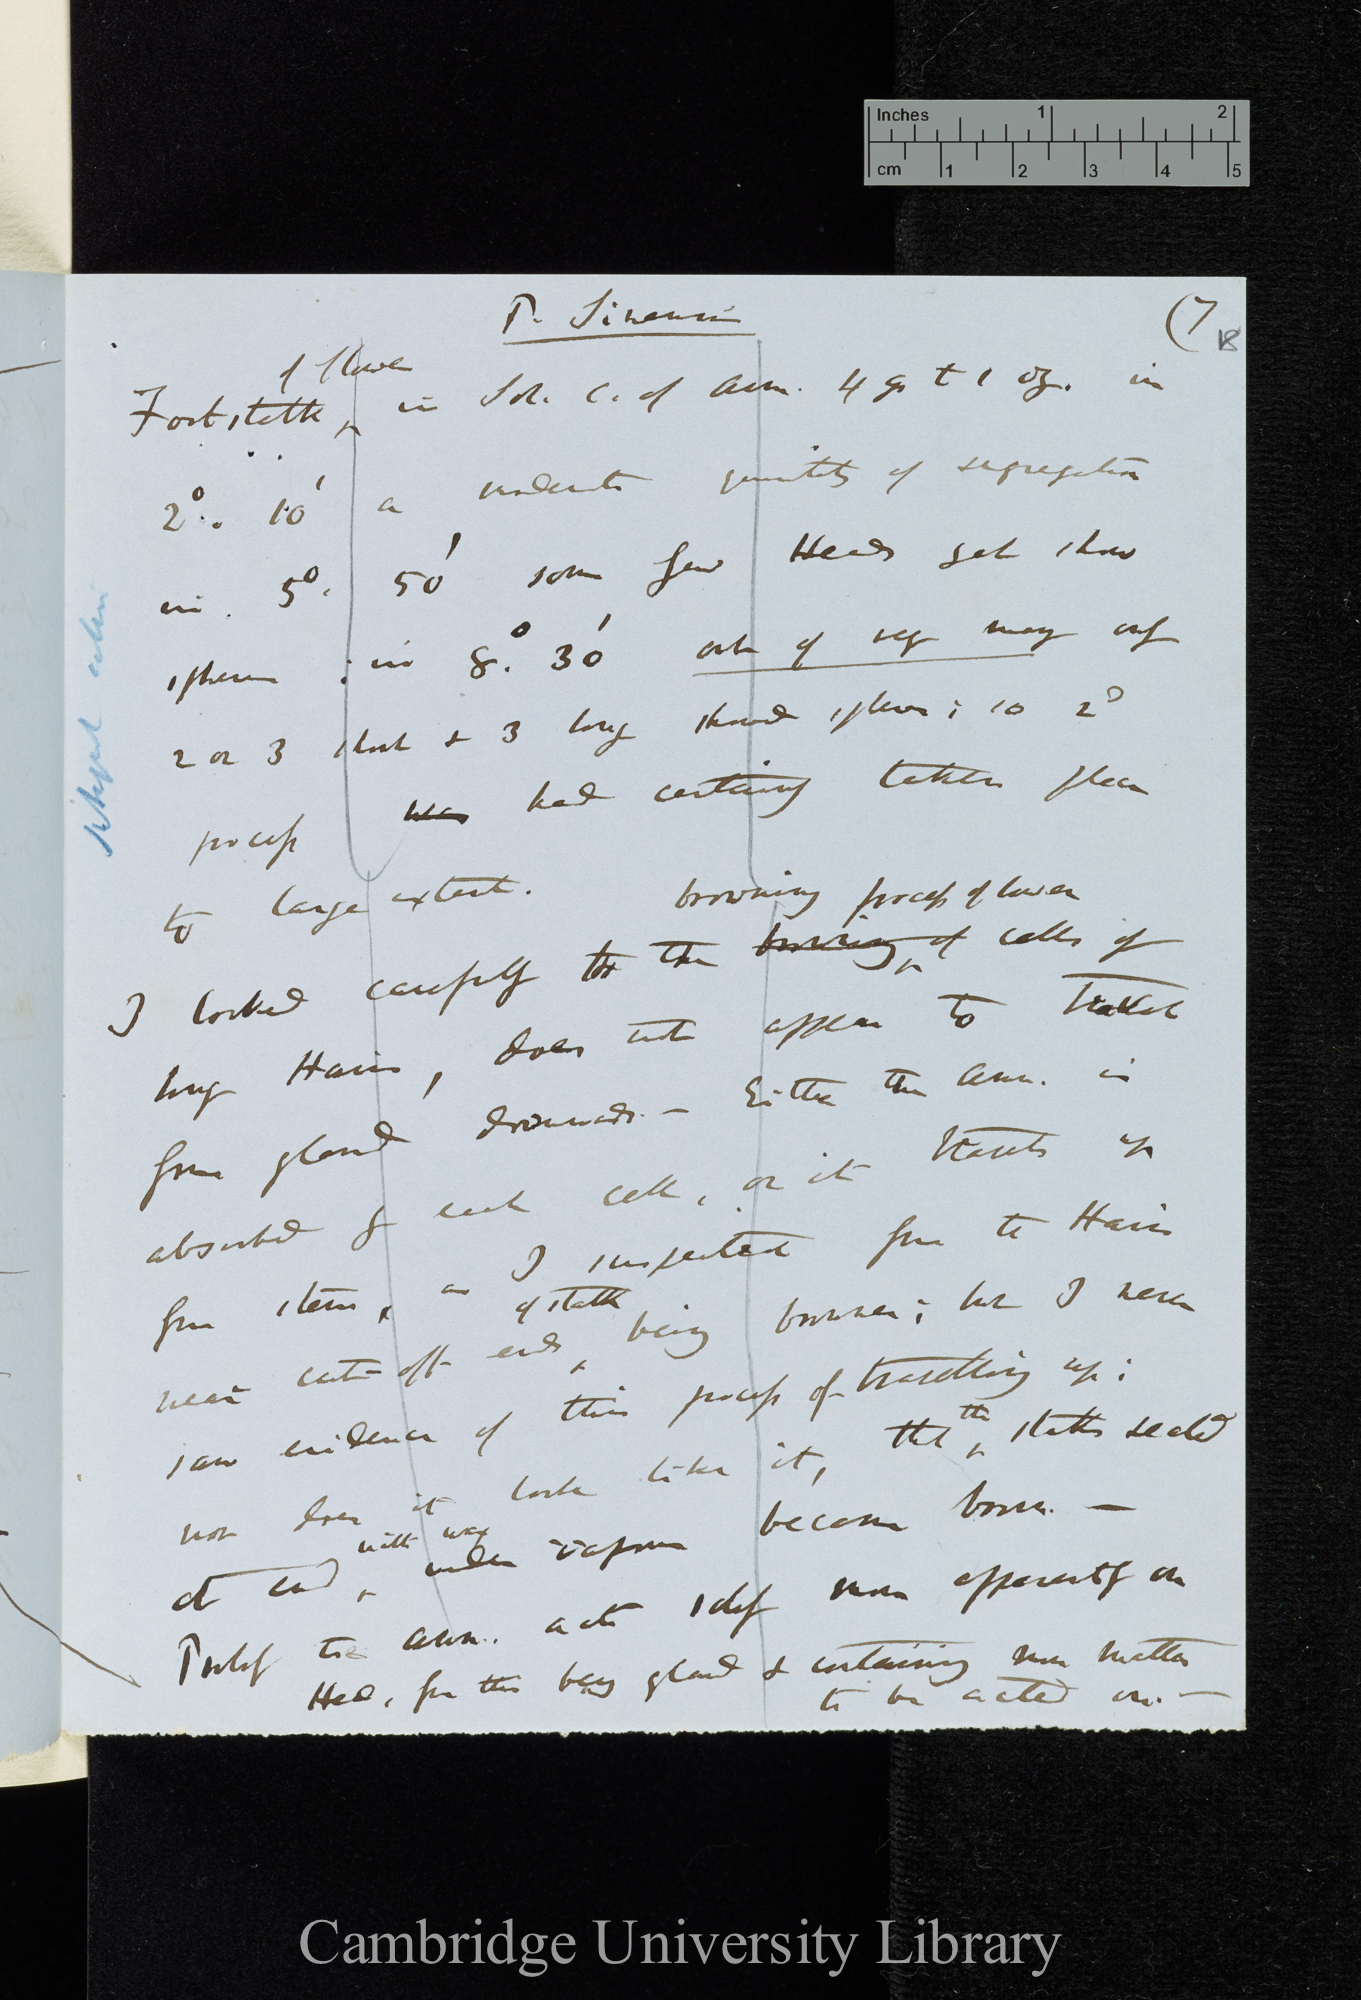 Inches 1 2
cm 1 2 3 4 5
P. Sinensis (7
B
of flower
Footstalk, in Sol. C. of Amm. 4 gr to 1 oz. in
2°. 10' a moderate quantity of segregation
in 5°. 50' some few Heads get show
spheres; in 8°. 30' out of very many only
2 or 3 short & 3 long showed spheres; so 2°
process was had certainly taken place
to large extent.
browning process of lower
I looked carefully to the browning of cells of
long Hairs, does not appear to travel
from gland downwards.— Either the amm. is
absorbed by each cell, or it travels up
from stem, as I suspected from the Hairs
of stalk
near cut-off ends being browner; but I never
saw evidence of this process of travelling up;
nor does it look like it, that the stalks sealed
with wax
at end, under vapour became brown.—
Probably the amm. acts solely more apparently on
Head, from this being gland & containing more matter
to be acted on.—
Cambridge University Library